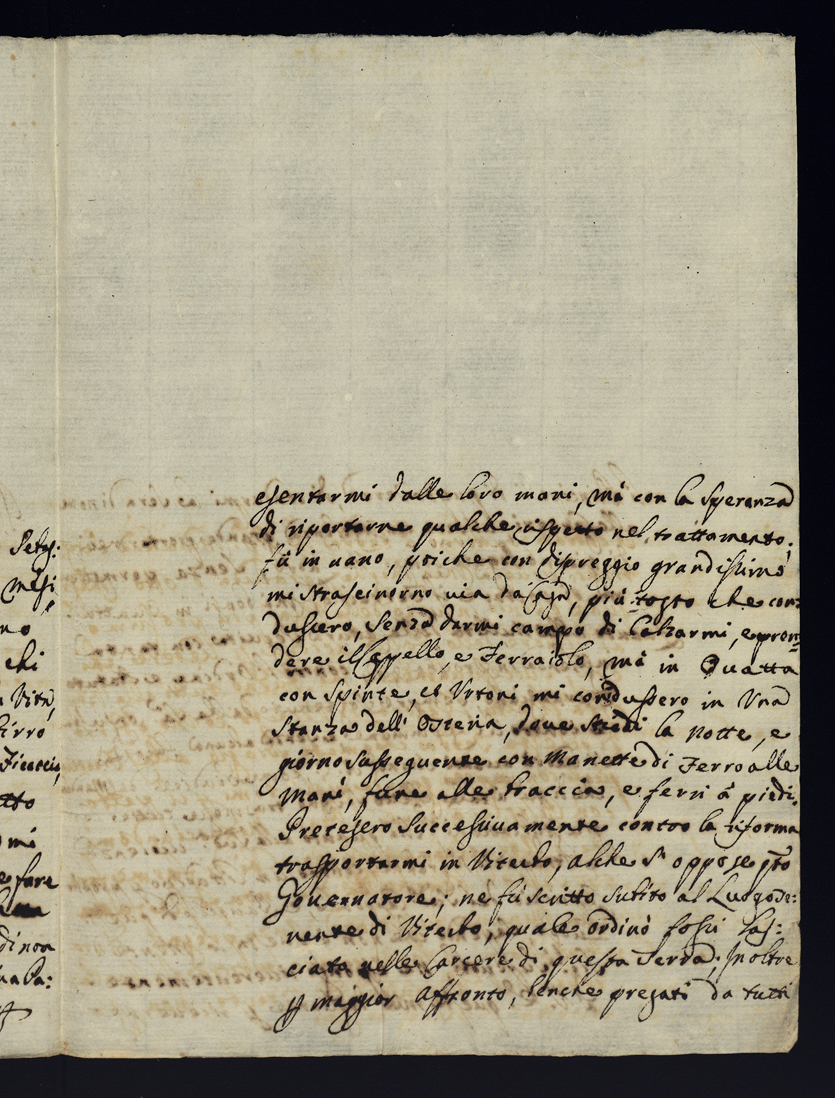 esentarmi dalle loro mani, mà con la speranza
di riportarne qualche rispetto nel trattamento;
fù in uano, poiche con dispreggio grandissimo
mi strascinorno uia da Casa, più tosto che con=
dussero, senza darmi campo di Calzarmi, e pren=
dere il Cappello, e Ferraiolo, mà in Ouatta
con spinte, et Vrtoni mi condussero in Vna
stanza dell' Osteria, doue stiedi la notte, e
giorno susseguente con Manette di Ferro alle
Mani, fune alle braccia, e ferri à piedi.
Pretesero successiuamente contro la riforma
trasportarmi in Viterbo, alche s' oppose q̃sto
Gouernatore; ne fù scritto subito al Luogote:
nente di Viterbo, quale ordinò fossi las:
ciata nelle Carcere di questa Terra; Inoltre
p maggior affronto, benche pregati da tutti
Setts:
Mesi
no
chi
Vita,
birro
Ficaccia,
tto
mi
e fare
di non
ua Ca: